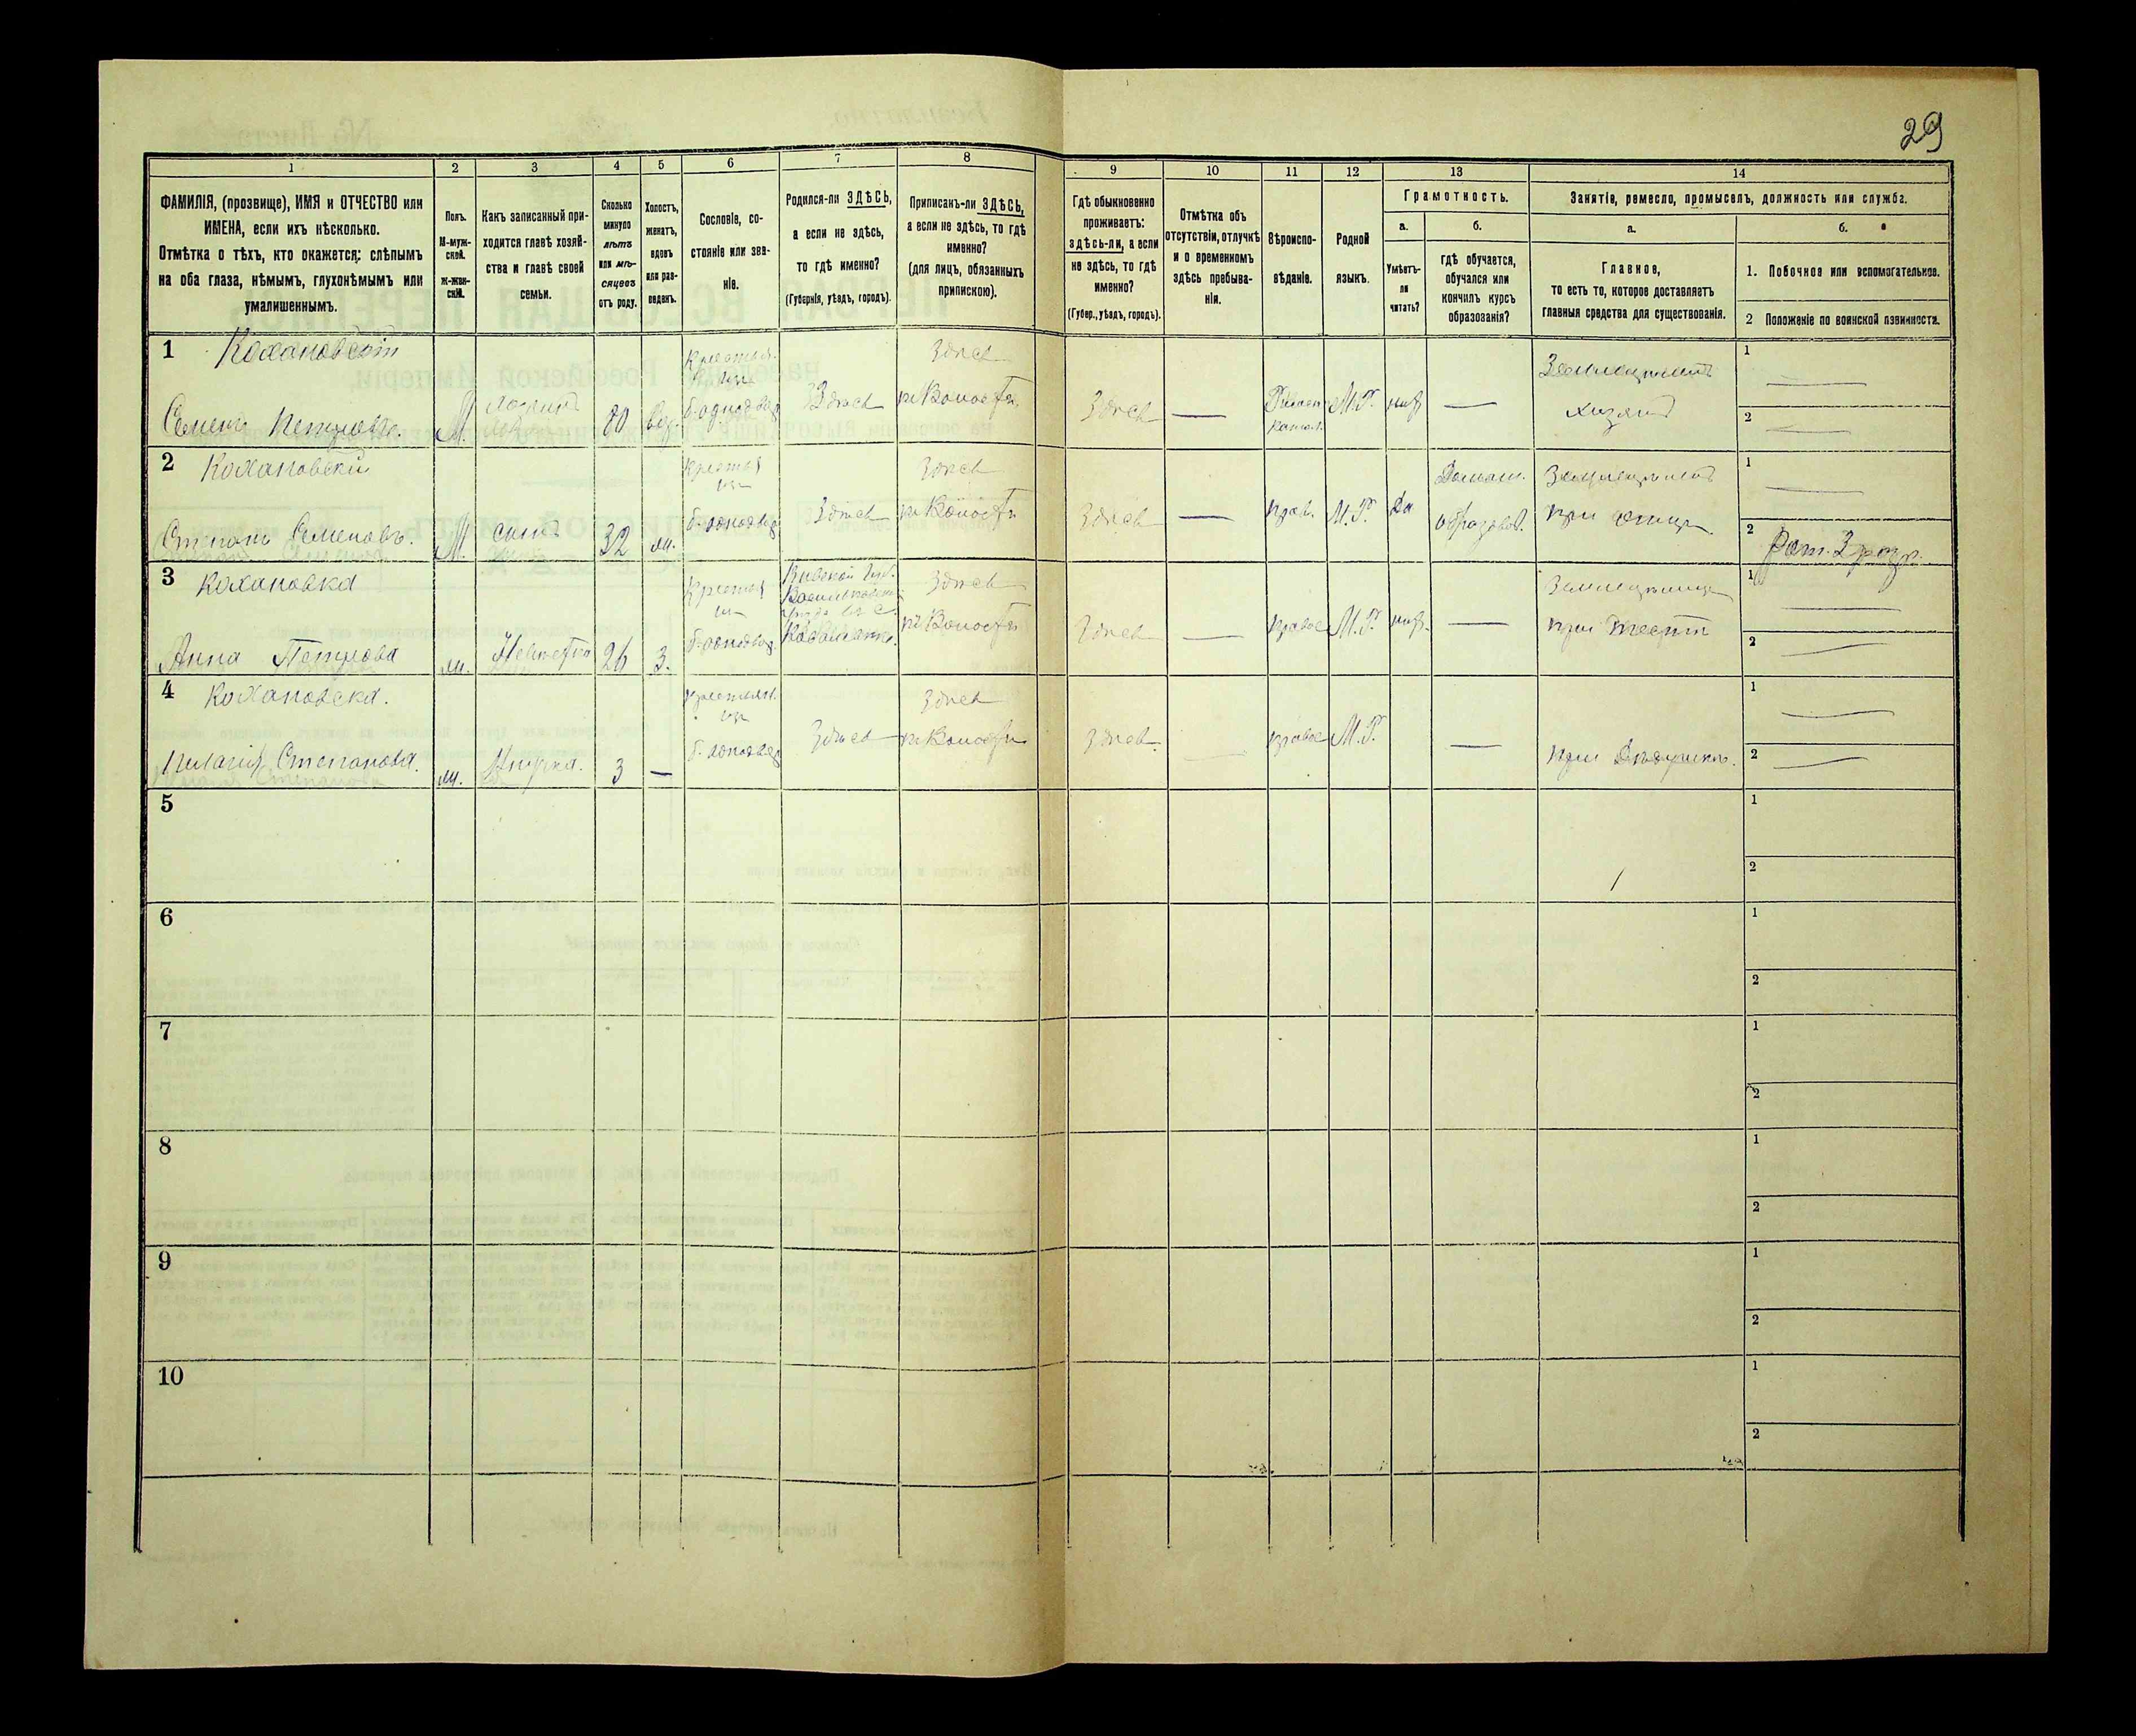 29
1
2
3
4
5
6
7
8
9
10
11
12
13
14
ФАМИЛІЯ, (прозвище), ИМЯ и ОТЧЕСТВО или
ИМЕНА, если ихъ нѣсколько.
Отмѣтка о тѣхъ, кто окажется: слѣпымъ
на оба глаза, нѣмымъ, глухонѣмымъ или
умалишеннымъ.
Полъ.
М-муж-
ской.
ж-жен-
скій.
Какъ записанный при-
ходится главѣ хозяй-
ства и главѣ своей
семьи.
Сколько
минуло
лѣтъ
или мѣ-
сяцевъ
отъ роду.
Холостъ,
женатъ,
вдовъ
или раз-
веденъ.
Сословіе, со-
стояніе или зва-
ніе.
Родился-ли ЗДѢСЬ,
а если не здѣсь,
то гдѣ именно?
(Губернія, уѣздъ, городъ).
Приписанъ-ли ЗДѢСЬ,
а если не здѣсь, то гдѣ
именно?
(для лицъ, обязанныхъ
припискою).
Гдѣ обыкновенно
проживаетъ:
здѣсь-ли, а если
не здѣсь, то гдѣ
именно?
(Губер., уѣздъ, городъ).
Отмѣтка объ
отсутствіи, отлучкѣ
и о временномъ
здѣсь пребыва-
ніи.
Вѣроиспо-
вѣданіе.
Родной
языкъ.
Грамотность.
а.
Умѣетъ-
ли
читать?
б.
гдѣ обучается,
обучался или
кончилъ курсъ
образованія?
Занятіе, ремесло, промыселъ, должность или служба.
а.
Главное,
то есть то, которое доставляетъ
главныя средства для существованія.
б.
1. Побочное или вспомогательное.
2 Положеніе по воинской повинности.
1 Кохановскій
Семенъ Петровъ.
М.
80
вд.
б. однодвор
Здѣсь
Здѣсь
Здѣсь
—
М.Р.
—
хозяинъ
1
2
2 Кохановскій
Степанъ Семеновъ.
М.
сынъ
32
ж.
б. однодвор
Здѣсь
Здѣсь
Здѣсь
—
прав.
М.Р.
Да
Домаш.
образов.
при отцѣ
1
2 Рат. 2 разр.
3 Кохановска
Анна Петрова
ж.
Невѣстка
26
З.
б. однодвор.
Кіевской Губ.
Здѣсь
Здѣсь
—
правос
М.Р.
—
при тестѣ
1
2
4 Кохановска.
Пелагія Степанова.
ж.
Внучка.
3
—
б. однодвор
Здѣсь
Здѣсь
Здѣсь
правос
М.Р.
—
при Дѣдушкѣ.
1
2
5
1
2
6
1
2
7
1
2
8
1
2
9
1
2
10
1
2